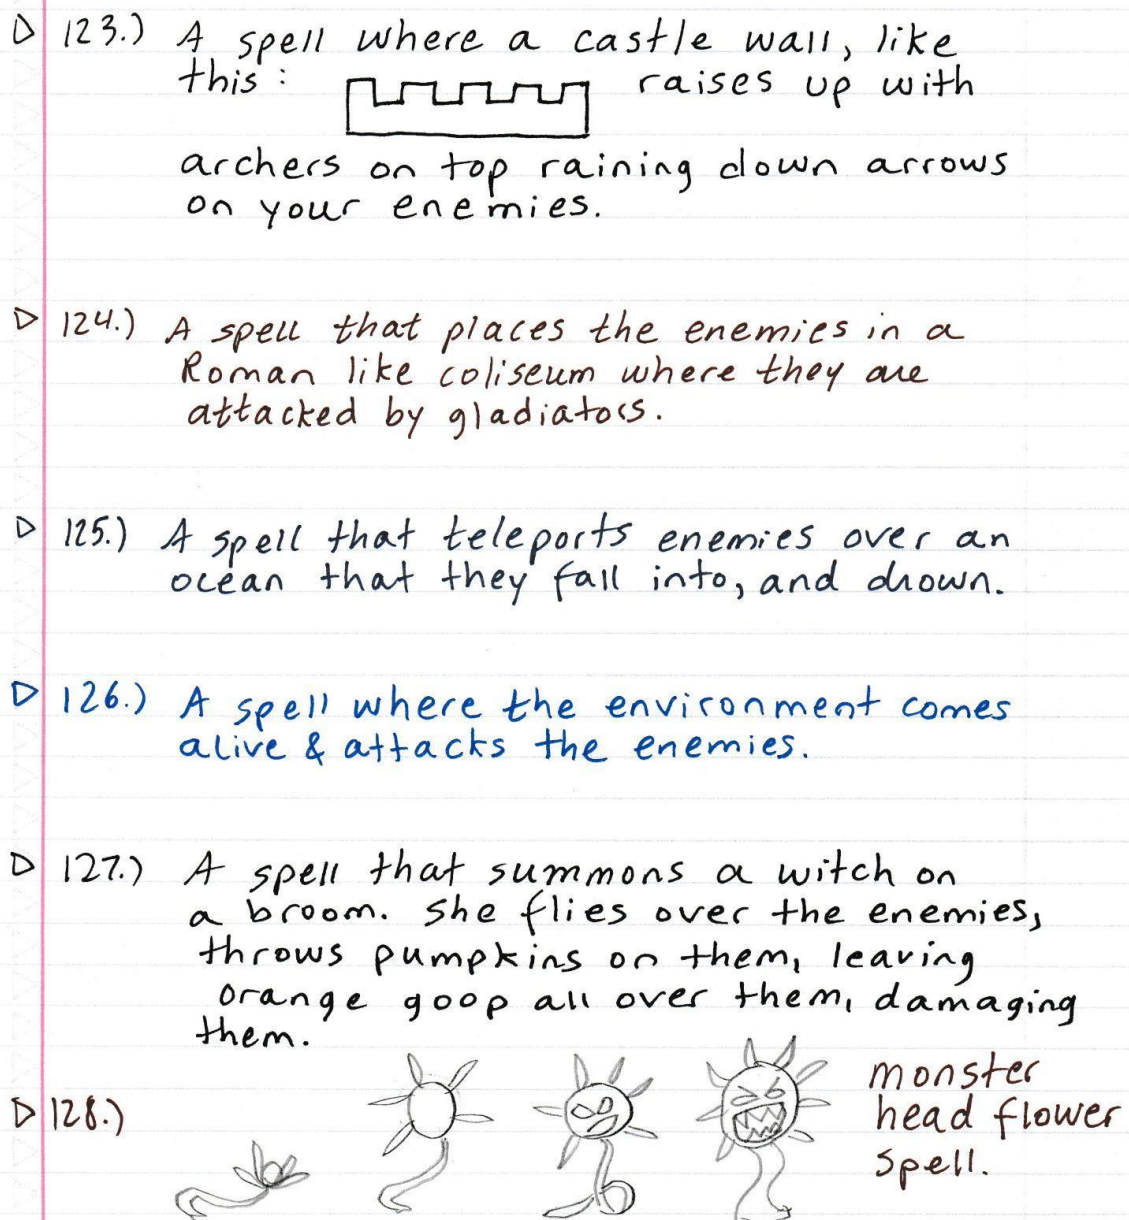 123.) A spell where a castle wall, like
this: raises up with
archers on top raining down arrows
on your enemies.
124.) A spell that places the enemies in a
Roman like coliseum where they are
attacked by gladiators.
125.) A spell that teleports enemies over an
ocean that they fall into, and drown.
126.) A spell where the environment comes
alive & attacks the enemies.
127.) A spell that summons a witch on
a broom. She flies over the enemies,
throws pumpkins on them, leaving
orange goop all over them, damaging
them.
128.) monster
head flower
spell.